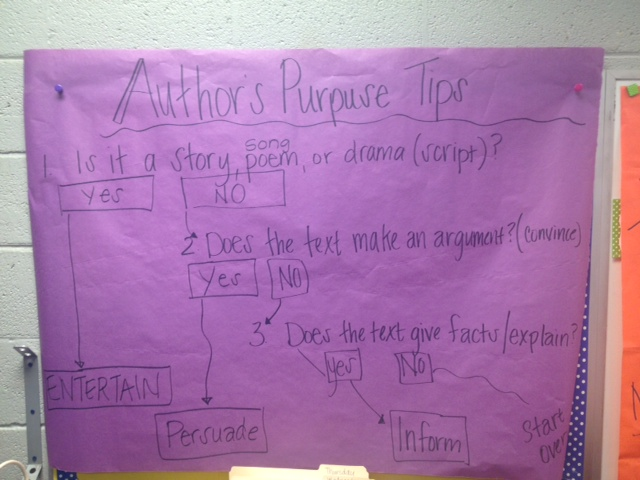 Author's Purpuse Tips
song
1 Is it a story, poem, or drama (script)?
Yes NO
2 Does the text make an argument? (convince)
Yes NO
3 Does the text give facts/explain?
Yes No
ENTERTAIN
Persuade
Inform
Start
Over